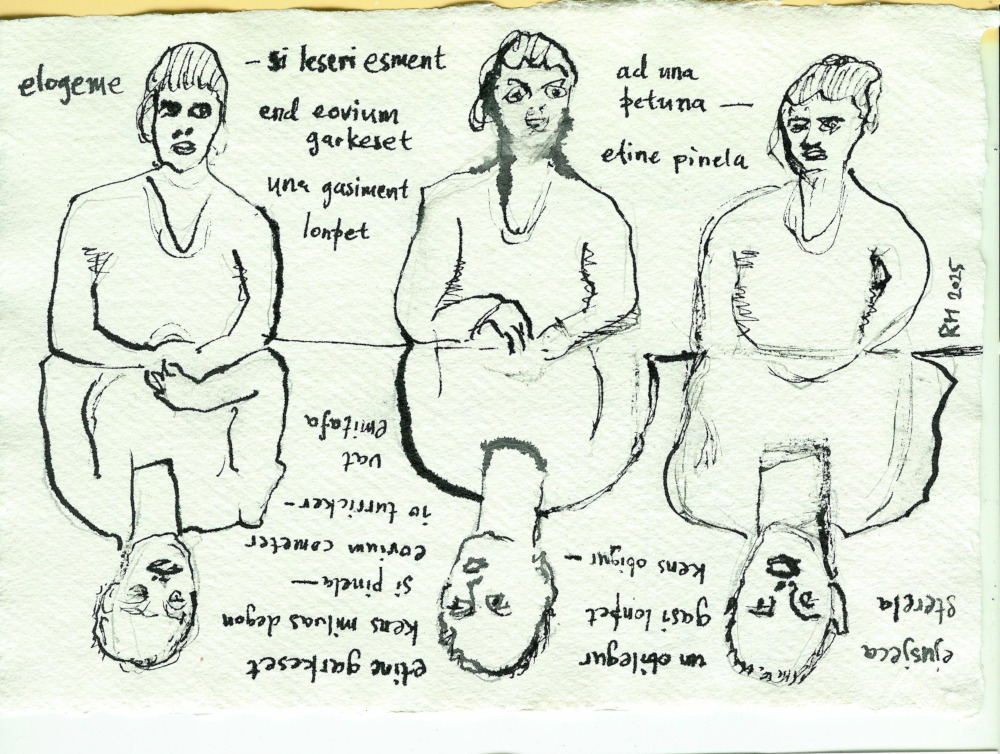 elogeme
— si leseri esment
end eovium
garkeset
una gasiment
lonpet
ad una
petuna —
etine pinela
RH 2025
ejusjeca
sterela
un obilegur
gasi lonpet
kens obigur —
etine garkeset
kens milvas degon
si pinela —
eovium cometer
io turricker -
vat
emitafa